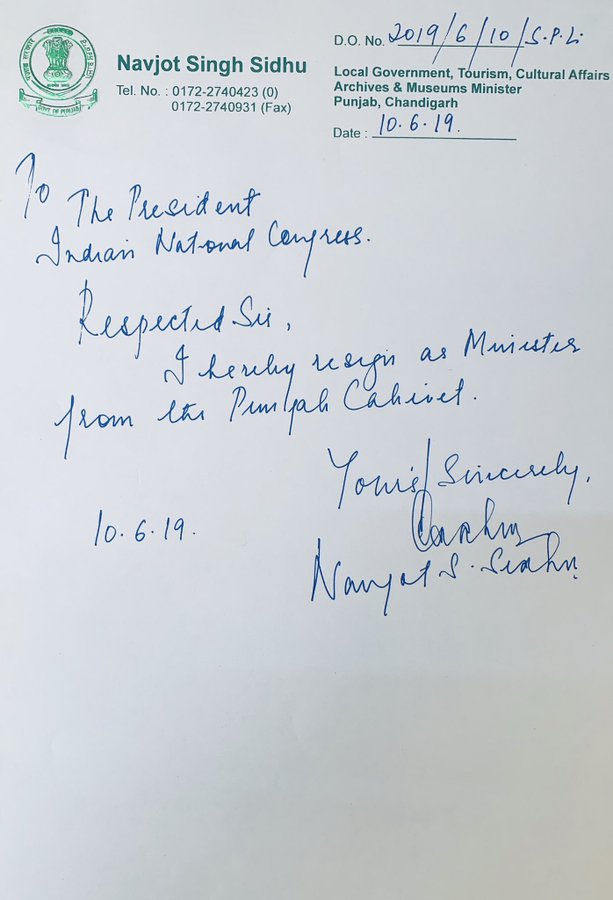 D.O. No. 2019/6/10/S.P.L.
Navjot Singh Sidhu
Tel. No. : 0172-2740423 (0)
0172-2740931 (Fax)
Local Government, Tourism, Cultural Affairs
Archives & Museums Minister
Punjab, Chandigarh
Date : 10.6.19.
GOVT. OF PUNJAB
To
The President
Indian National Congress.
Respected Sir,
I hereby resign as Minister
from the Punjab Cabinet.
Yours Sincerely,
10.6.19.
Navjot S. Sidhu